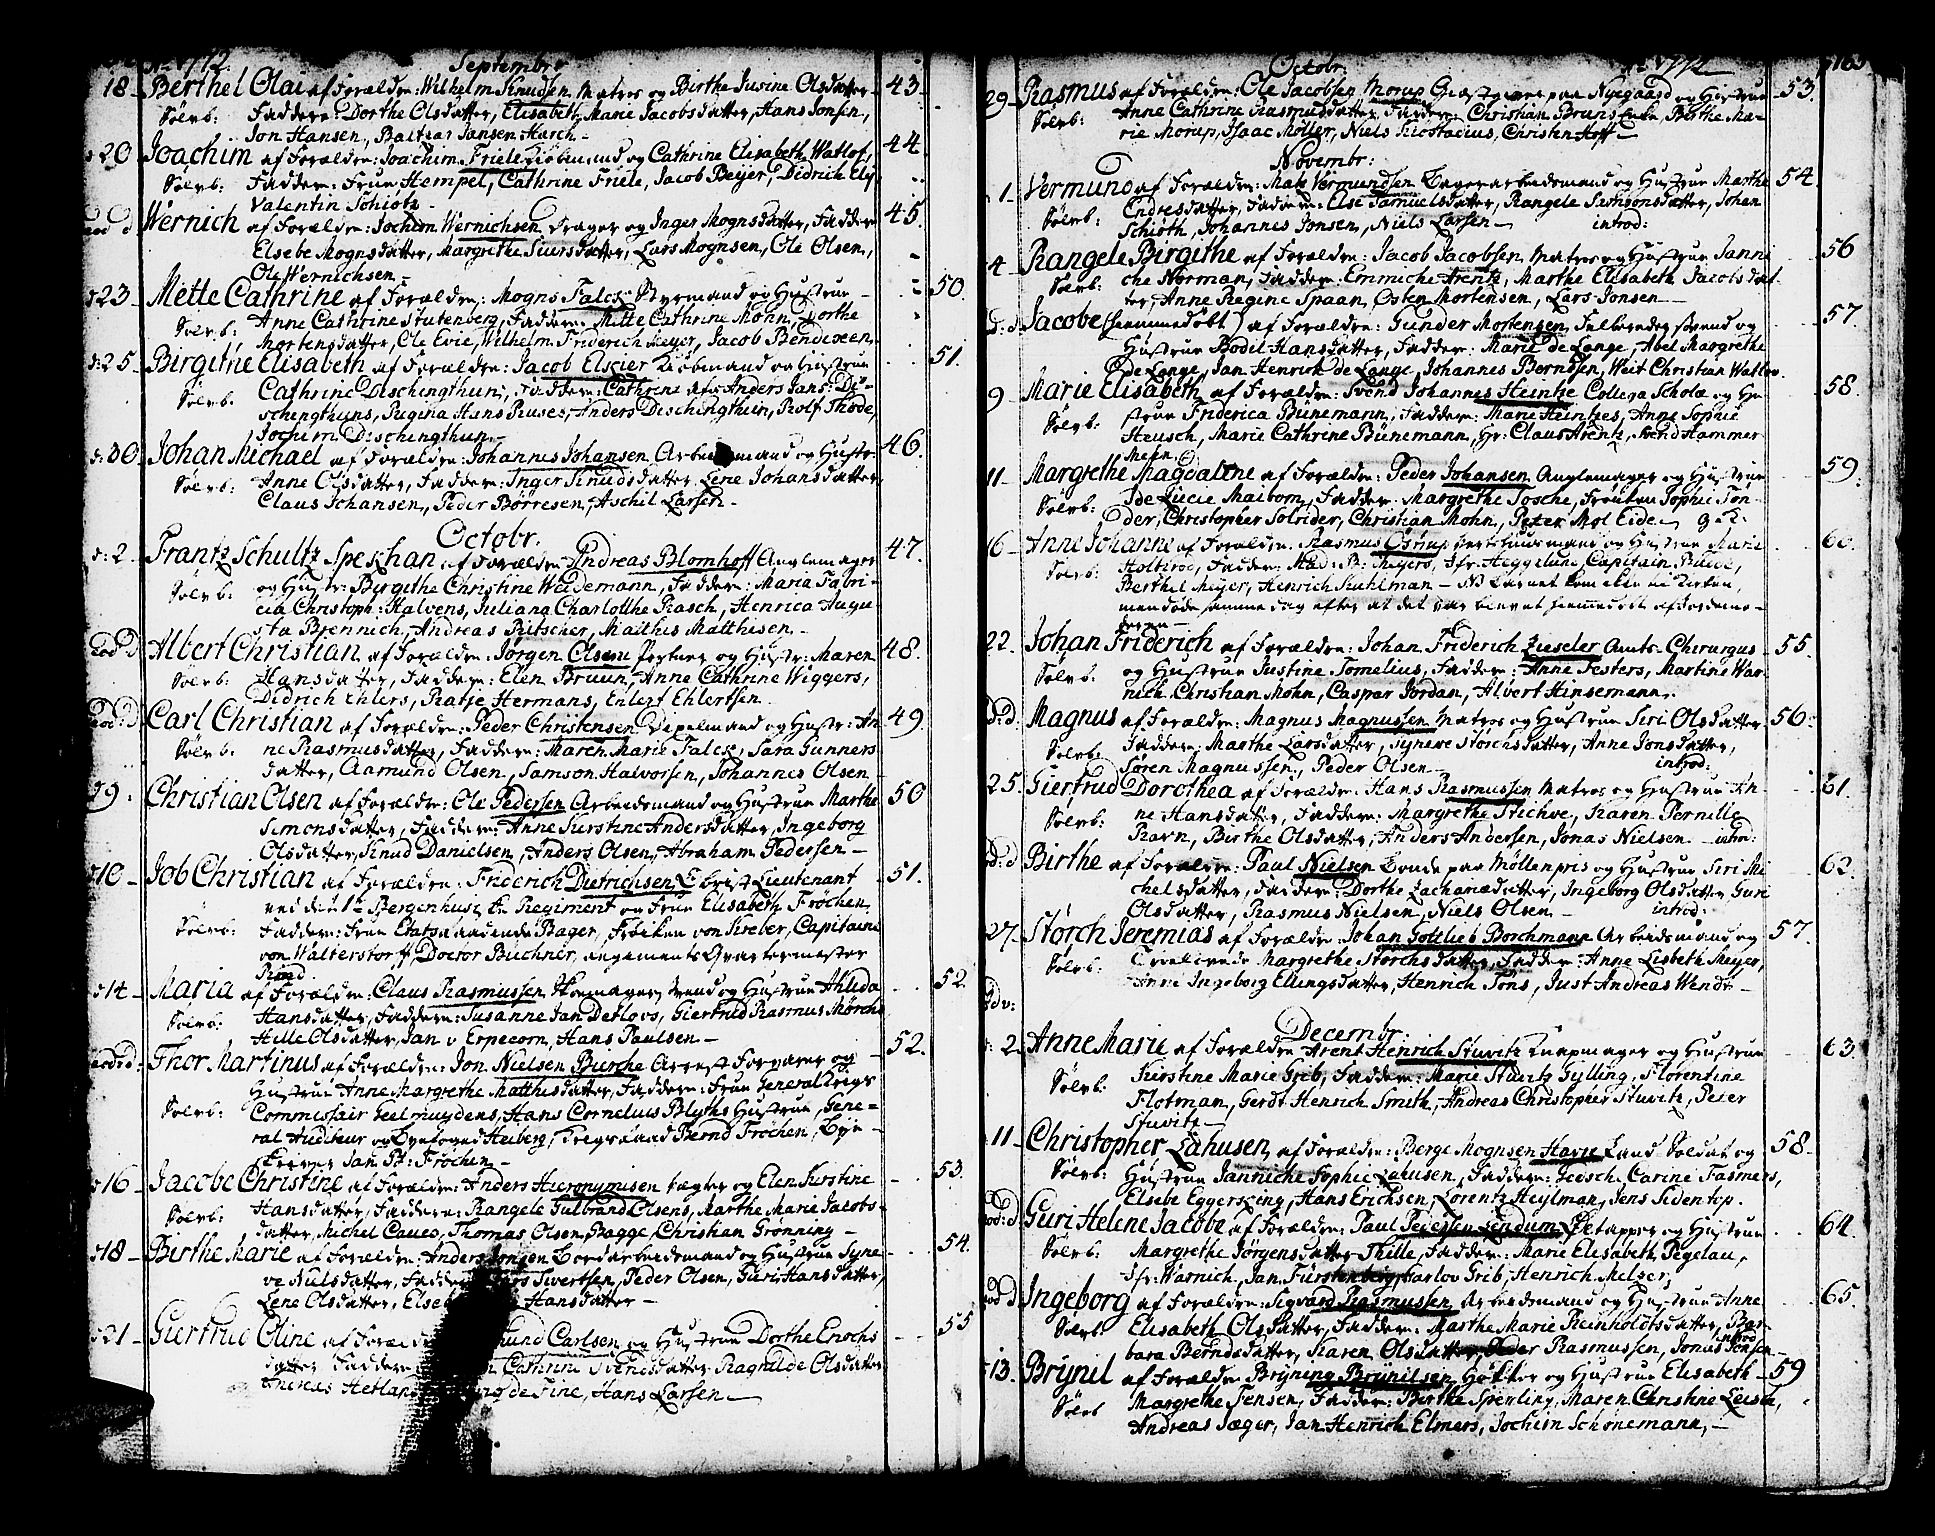 1772. Septembr
18. Berthel Olai af Forældre: Wilhelm Knudsen Matros og Birthe Jusine Olsdatter 43.
Sølvb: Faddere: Dorthe Olsdatter, Elisabeth Marie Jacobsdatter, Hans Jonsen,
Jon Hansen, Baltzar Jansen Harch
20 Joachim af Forældre: Joachim Friele Kiøbmand og Cathrine Elisabeth Watlof, 44.
Sølvb: Faddere: Frue Hempel, Cathrine Friele, Jacob Beyer, Didrich Ely
Valentin Schiøtz
eod d Wernich af Forældre: Jochim Wernichsen Drager og Inger Mognsdatter, Faddere 45.
Elsebe Mognsdatter, Margrethe Siursdatter, Lars Mognsen, Ole Olsen,
Ole Wernichsen
23 Mette Cathrine af Forældre: Mogns Falck Styrmand og Hustrue 50.
Sølvb: Anne Cathrine Stutenberg, Faddere: Mitte Cathrine Mohn, Dorthe
Mortensdatter, Ole Evie, Wilhelm Friderich Meyer, Jacob Bendixen
25 Birgithe Elisabeth af Forældre: Jacob Elsier Kiøbmand og Hustrue 51
Sølvb. Cathrine Dischengthun, Faddere: Cathrine afg Anders Jans: Di-
schengthuns, Regina Hans Ruses, Anders Dischengthun, Rolf Thode,
Jochim Dischengthun
30 Johan Michael af Forældre: Johannes Johansen Arbeidsmand og Hustr: 46.
Sølvb: Anne Olsdatter, Faddere: Inger Knudsdatter Lene Johansdatter
Claus Johansen, Peder Børresen, Aschil Larsen
Octobr.
2. Frantz Schultz Spekhan af Forældre Andreas Blomhoff Anglemager 47.
Sølvb: og Hustr: Birgithe Christine Weidemann, Faddere: Maria Fabri-
cia Christoph: Halvens, Juliana Charlotthe Rasch, Henrica Augu
sta Brennich, Andreas Ritscher, Matthis Matthisen
eod D Albert Christian af Forældre: Jørgen Olsen Portner og Hustr: Maren 48.
Sølvb: Hansdatter, Faddere: Elen Bruun, Anne Cathrine Wiggers,
Didrich Ehlers, Ratje Hermans, Enlert Ehlertsen
eod: D Carl Christian af Forældre: Peder Christensen Væpelmand og Hustr: An 49.
Sølvb. ne Rasmusdatter, Faddere: Maren Marie Falck, Sara Gunners
datter, Aamund Olsen, Samson Halvorsen, Johannes Olsen
9. Christian Olsen af Forældre: Ole Pedersen Arbeidsmand og Hustrue Marthe 50
Simonsdatter, Faddere: Anne Kirstine Andersdatter, Ingeborg
Olsdatter, Knud Danielsen, Anders Olsen, Abraham Pedersen
10 Job Christian af Forældre: Friderich Dietrichsen Obrist Lieutenant 51.
ved det 1te Bergenhusiske Regiment og Frue Elisabeth Frøchen
Sølvb: Faddere: Frue Etatsraadinde Bager, Frøiken von Kreber, Capitaine
von Walterstorff, Doctor Büchner, Regiments Qvartermester
Rind
14 Maria af Forældre: Claus Rasmussen Skomager svend og Hustrue Ahlida 52.
Sølvb: Hansdatter, Faddere: Susanne Jan Detlovs, Giertrud Rasmus Mørchs
Hille Olsdatter, Jan v Erpecom, Hans Paulsen
eod: d: Thor Martinus af Forældre: Jon Nielsen Biørche Arrest Forvarer og 52.
Hustrue Anne Margrethe Matthisdatter, Faddere: Frue General Krigs
Sølvb: Commissair Geelmuydens, Hans Cornelius Blyths Hustrue, Gene-
ral Auditeur og Byefoged Heiberg, Krigsraad Bernd Frøchen, Bye-
skriver Jan Pt: Frøchen
16 Jacobe Christine af Forældre: Anders Hieronymisen Vægter og Elen Kirstine 53.
Sølvb: Hansdatter, Faddere: Rangele Gulbrand Olsens, Marthe Marie Jacobs-
datter, Michel Cauco, Thomas Olsen Bagge, Christian Grønning
18 Birthe Marie af Forældre: Anders Jonsen Bordarbeidsmand og Hustrue Syne- 54.
ve Nielsdatter, Fadder Lars Sivertsen, Peder Olsen, Guri Hansdatter,
Lene Olsdatter, Elsebe Hansdatter
21 Giertrud Oline af Foræld mund Carlsen og Hustrue Dorthe Enochs 55
datter Faddere Cathrine Svendsdatter Ragnilde Olsdatter
Andreas Hetland de Fine, Hans Larsen
Octobr. Ao 1772 163
29. Rasmus af Forældre: Ole Jacobsen Morup Giæstgiver paa Nyegaard og Hustrue 53.
Sølvb: Anne Cathrine Rasmusdatter, Faddere: Christian Bruns Enke, Birthe Ma-
rie Morup, Isaac Møller, Niels Nicostadius, Christen Hoff
Novembr:
1 Vermund af Forældre: Mats Vermundsen Bagerarbeidsmand og Hustrue Marthe 54
Sølvb: Endresdatter, Faddere: Else Samuelsdatter, Rangele Simonsdatter, Johan
Schiøth, Johannes Jonsen, Niels Larsen introd:
4 Rangele Birgithe af Forældre: Jacob Jacobsen Matros og Hustrue Janni- 56
Sølvb: che Norman, Faddere: Emmiche Arentz, Marthe Elisabeth Jacobsdat
ter, Anne Regine Spaan, Osten Mortensen, Lars Jonsen
D: d Jacobe (hiemmedøbt) af Forældre: Gunder Mortensen Felberedersvend og 57
Hustrue Bodil Hansdatter, Faddere: Marie de Lange, Abel Margrethe
de Lange, Jan Henrich de Lange, Johannes Berndsen, Weit Christian Watlov
9 Marie Elisabeth af Forældre: Svend Johannes Heintze Collega Scholæ og Hu- 58
Sølvb: strue Friderica Bünemann, Faddere: Marie Heintzes, Anne Sophie
Heusch, Marie Cathrine Bünemann, Hr: Claus Arentz, Svend Hammer
Meen
11 Margrethe Magdalene af Forældre: Peder Johansen Anglemager og Hustrue 59.
Sølvb: Ide Lucie Maiborn, Faddere: Margrethe Tosche, Frøiken Sophie Ton-
der, Christopher Solrider, Christian Mohn, Peter Mol Eide
16 Anne Johanne af Forældre: Rasmus Ostrup Værtshuusmand og Hustrue Marie 60.
Sølvb: Holtbroe, Faddere: Mad: B: Meyers, Jfr: Heggelund, Capitain Riece,
Berthel Meyer, Henrich Kuhlman NB Barnet kom ikke til Kirken,
men døde samme dag efter at det var blevet hiemmedøbt af Jordemo-
deren
22. Johan Friderich af Forældre: Johan Friderich Zieseler Amts-Chirurgus 55.
Sølvb: og Hustrue Justine Tornelius, Faddere: Anne Festers, Martine War-
nich, Christian Mohn, Caspar Jordan, Albert Hinsemann
D: d. Magnus af Forældre: Magnus Magnussen Matros og Hustrue Siri Olsdatter 56:
Sølvb. Faddere: Marthe Larsdatter, Syneve Storchsdatter, Anne Jonsdatter,
Søren Magnussen, Peder Olsen introd:
25. Giertrud Dorothea af Forældre: Hans Rasmussen Matros og Hustrue An- 61.
Sølvb: ne Hansdatter, Faddere: Margrethe Stichoe, Karen Pernille
Ravn, Birthe Olsdatter, Anders Andersen, Jonas Nielsen introd:
D: d Birthe af Forældre: Paul Nielsen Bonde paa Møllenpris og Hustrue Siri Mi- 62.
chelsdatter, Faddere: Dorthe Zachariædatter, Ingeborg Olsdatter Guri
Olsdatter, Rasmus Nielsen, Niels Olsen introd:
27 Størch Jeremias af Forældre: Johan Gottlieb Borchmann Arbeidsmand og 57.
Sølvb: Trolovede Margrethe Storchsdatter, Faddere: Anne Lisbeth Meyer,
Anne Ingeborg Ellingsdatter, Henrich Tøns, Just Andreas Wendt
Decembr:
2. Anne Marie af Forældre Arent Henrich Stuvitz Knapmager og Hustrue 63.
Sølvb: Kirstine Marie Grib, Faddere: Marie Stuvitz Gylling, Florentine
Flotman, Gerdt Henrich Smith, Andreas Christopher Stuvitz, Peter
Stuvitz
11 Christopher Lahusen af Forældre: Berge Mognsen Havre Land Soldat og 58
Sølvb: Hustrue Janniche Sophie Lahusen, Faddere: Gedsch, Carine Fasmers,
Elsebe Eggersking, Hans Erichsen, Lorentz Heylman, Jens Sidentop.
eod: d Guri Helene Jacobe af Forældre: Paul Pedersen Lendum Øltapper og Hustrue 64.
Sølvb: Margrethe Jørgensdatter Thille, Faddere: Marie Elisabeth Pegelau,
Jfr: Warnich, Jan Fürstenberg, Karlov Grib, Henrich Melser,
eod D Ingeborg af Forældre: Sigvard Rasmussen Arbeidsmand og Hustrue Anne 65.
Sølvb. Elisabeth Olsdatter, Faddere: Marthe Marie Reinholdtsdatter, Bar-
bara Berndsdatter, Karen Olsdatter, Peder Rasmussen, Jonas Jonsen introd
13. Brynil af Forældre Bryning Brynilsen Høkker og Hustrue Elisabeth 59
Sølvb Margrethe Jensen, Faddere: Birthe Sperling, Maren Christine Leisen,
Andreas Jæger, Jan Henrich Elmers, Jochim Schønemann,